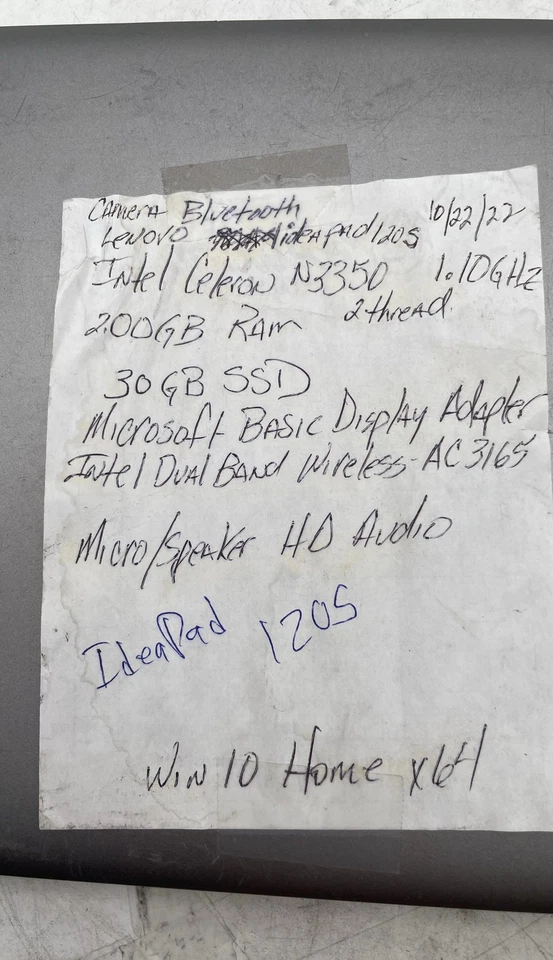 Camera Bluetooth 10/22/22
Lenovo ideapad 120s
Intel Celeron N3350 1.10GHz
200GB Ram 2 thread
30GB SSD
Microsoft Basic Display Adapter
Intel Dual Band Wireless-AC 3165
Micro/Speaker HD Audio
IdeaPad 120S
Win 10 Home x64